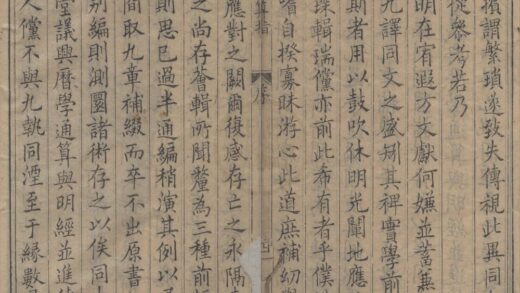 損謂繁瑣遂致失傳視此異同
從參考若乃
明在宥遐方文獻何嫌並蓄兼
九譯同文之盛矧其裨實學前
期者用以鼓吹休明光闡地應
琛輯瑞儻亦前此希有者乎僕
嗜自揆寡昧游心此道庶補幼
算指 序
應對之闕爾復感存亡之永隔
之尚存薈輯所聞釐為三種前
則思已過半通編稍演其例以
間取九章補綴而卒不出原書
別編則測圜諸術存之以俟同
堂議興曆學通算與明經並進
人儻不與九執同湮至于緣數